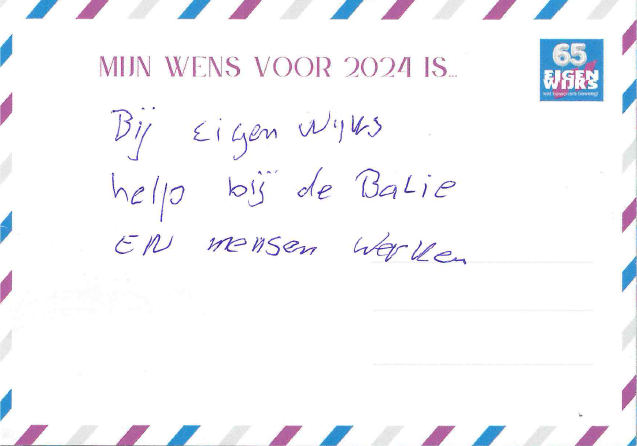 MIJN WENS VOOR 2024 IS...
65
EIGEN
WIJKS
Bij Eigen Wijks
help bij de Balie
EN mensen werken